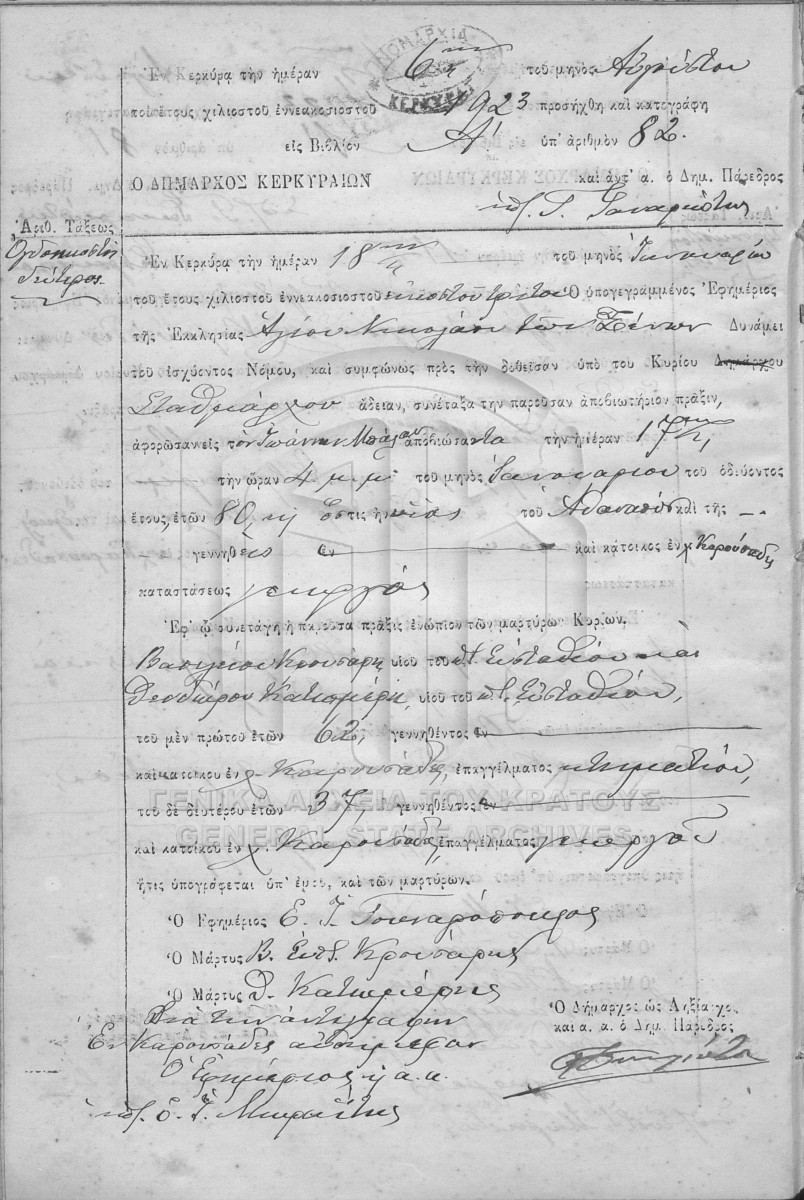 ΔΗΜΑΡΧΙΑ
ΚΕΡΚΥΡΑ
Ἐν Κερκύρᾳ τὴν ἡμέραν 6ην τοῦ μηνὸς Αὐγούστου
τοῦ ἔτους χιλιοστοῦ ἐννεακοσιοστοῦ 1923 προσήχθη καὶ κατεγράφη
εἰς Βιβλίον Α' ὑπ' ἀριθμὸν 82.
Ο ΔΗΜΑΡΧΟΣ ΚΕΡΚΥΡΑΙΩΝ καὶ ἀντ' α. ὁ Δημ. Πάρεδρος
ὑπ. Γ.
Ἀριθ. Τάξεως
Ὀγδοηκοστὴ
δεύτερος
Ἐν Κερκύρᾳ τὴν ἡμέραν 18ην τοῦ μηνὸς Ἰανουαρίου
τοῦ ἔτους χιλιοστοῦ ἐννεακοσιοστοῦ εἰκοστοῦ τρίτου Ὁ ὑπογεγραμμένος Ἐφημέριος
τῆς Ἐκκλησίας Ἁγίου Νικολάου τῶν Ξένων Δυνάμει
τοῦ ἰσχύοντος Νόμου, καὶ συμφώνως πρὸς τὴν δοθεῖσαν ὑπὸ τοῦ Κυρίου Δημάρχου
Σταθμάρχου ἄδειαν, συνέταξα τὴν παροῦσαν ἀποβιωτήριον πρᾶξιν,
ἀφορῶσαν εἰς τὸν Ἰωάννην ἀποβιώσαντα τὴν ἡμέραν 17ην,
τὴν ὥραν 4 μ.μ. τοῦ μηνὸς Ἰανουαρίου τοῦ ὁδεύοντος
ἔτους, ἐτῶν 80 ὅστις ἦν υἱὸς τοῦ καὶ τῆς —
— γεννηθεὶς ἐν — καὶ κάτοικος ἐν χ. Καρουσάδες
καταστάσεως γεωργός
Ἐφ' ᾧ συνετάγη ἡ παροῦσα πρᾶξις ἐνώπιον τῶν μαρτύρων Κυρίων.
Βασιλείου Κρουσάρη υἱοῦ τοῦ ποτ. Εὐσταθίου καὶ
Θεοδώρου Κατωμέρη, υἱοῦ τοῦ ποτ. Εὐσταθίου,
τοῦ μὲν πρώτου ἐτῶν 62, γεννηθέντος ἐν —
καὶ κατοίκου ἐν χ. Καρουσάδες, ἐπαγγέλματος κτηματίου,
τοῦ δὲ δευτέρου ἐτῶν 37, γεννηθέντος ἐν —
ΓΕΝΙΚΑ ΑΡΧΕΙΑ ΤΟΥ ΚΡΑΤΟΥΣ
GENERAL STATE ARCHIVES
καὶ κατοίκου ἐν χ. Καρουσάδες, ἐπαγγέλματος γεωργοῦ
ἥτις ὑπογράφεται ὑπ' ἐμοῦ, καὶ τῶν μαρτύρων.
Ὁ Ἐφημέριος Ε. Ι. Γουναρόπουλος
Ὁ Μάρτυς Β. Εὐστ. Κρουσάρης
Ὁ Μάρτυς Θ. Κατωμέρης
Διὰ τὴν ἀντιγραφὴν
Ἐν Καρουσάδες αὐθημερὸν
Ὁ Ἐφημέριος
ὑπ.
Ὁ Δήμαρχος ὡς Ληξίαρχος
καὶ α. α. ὁ Δημ. Πάρεδρος